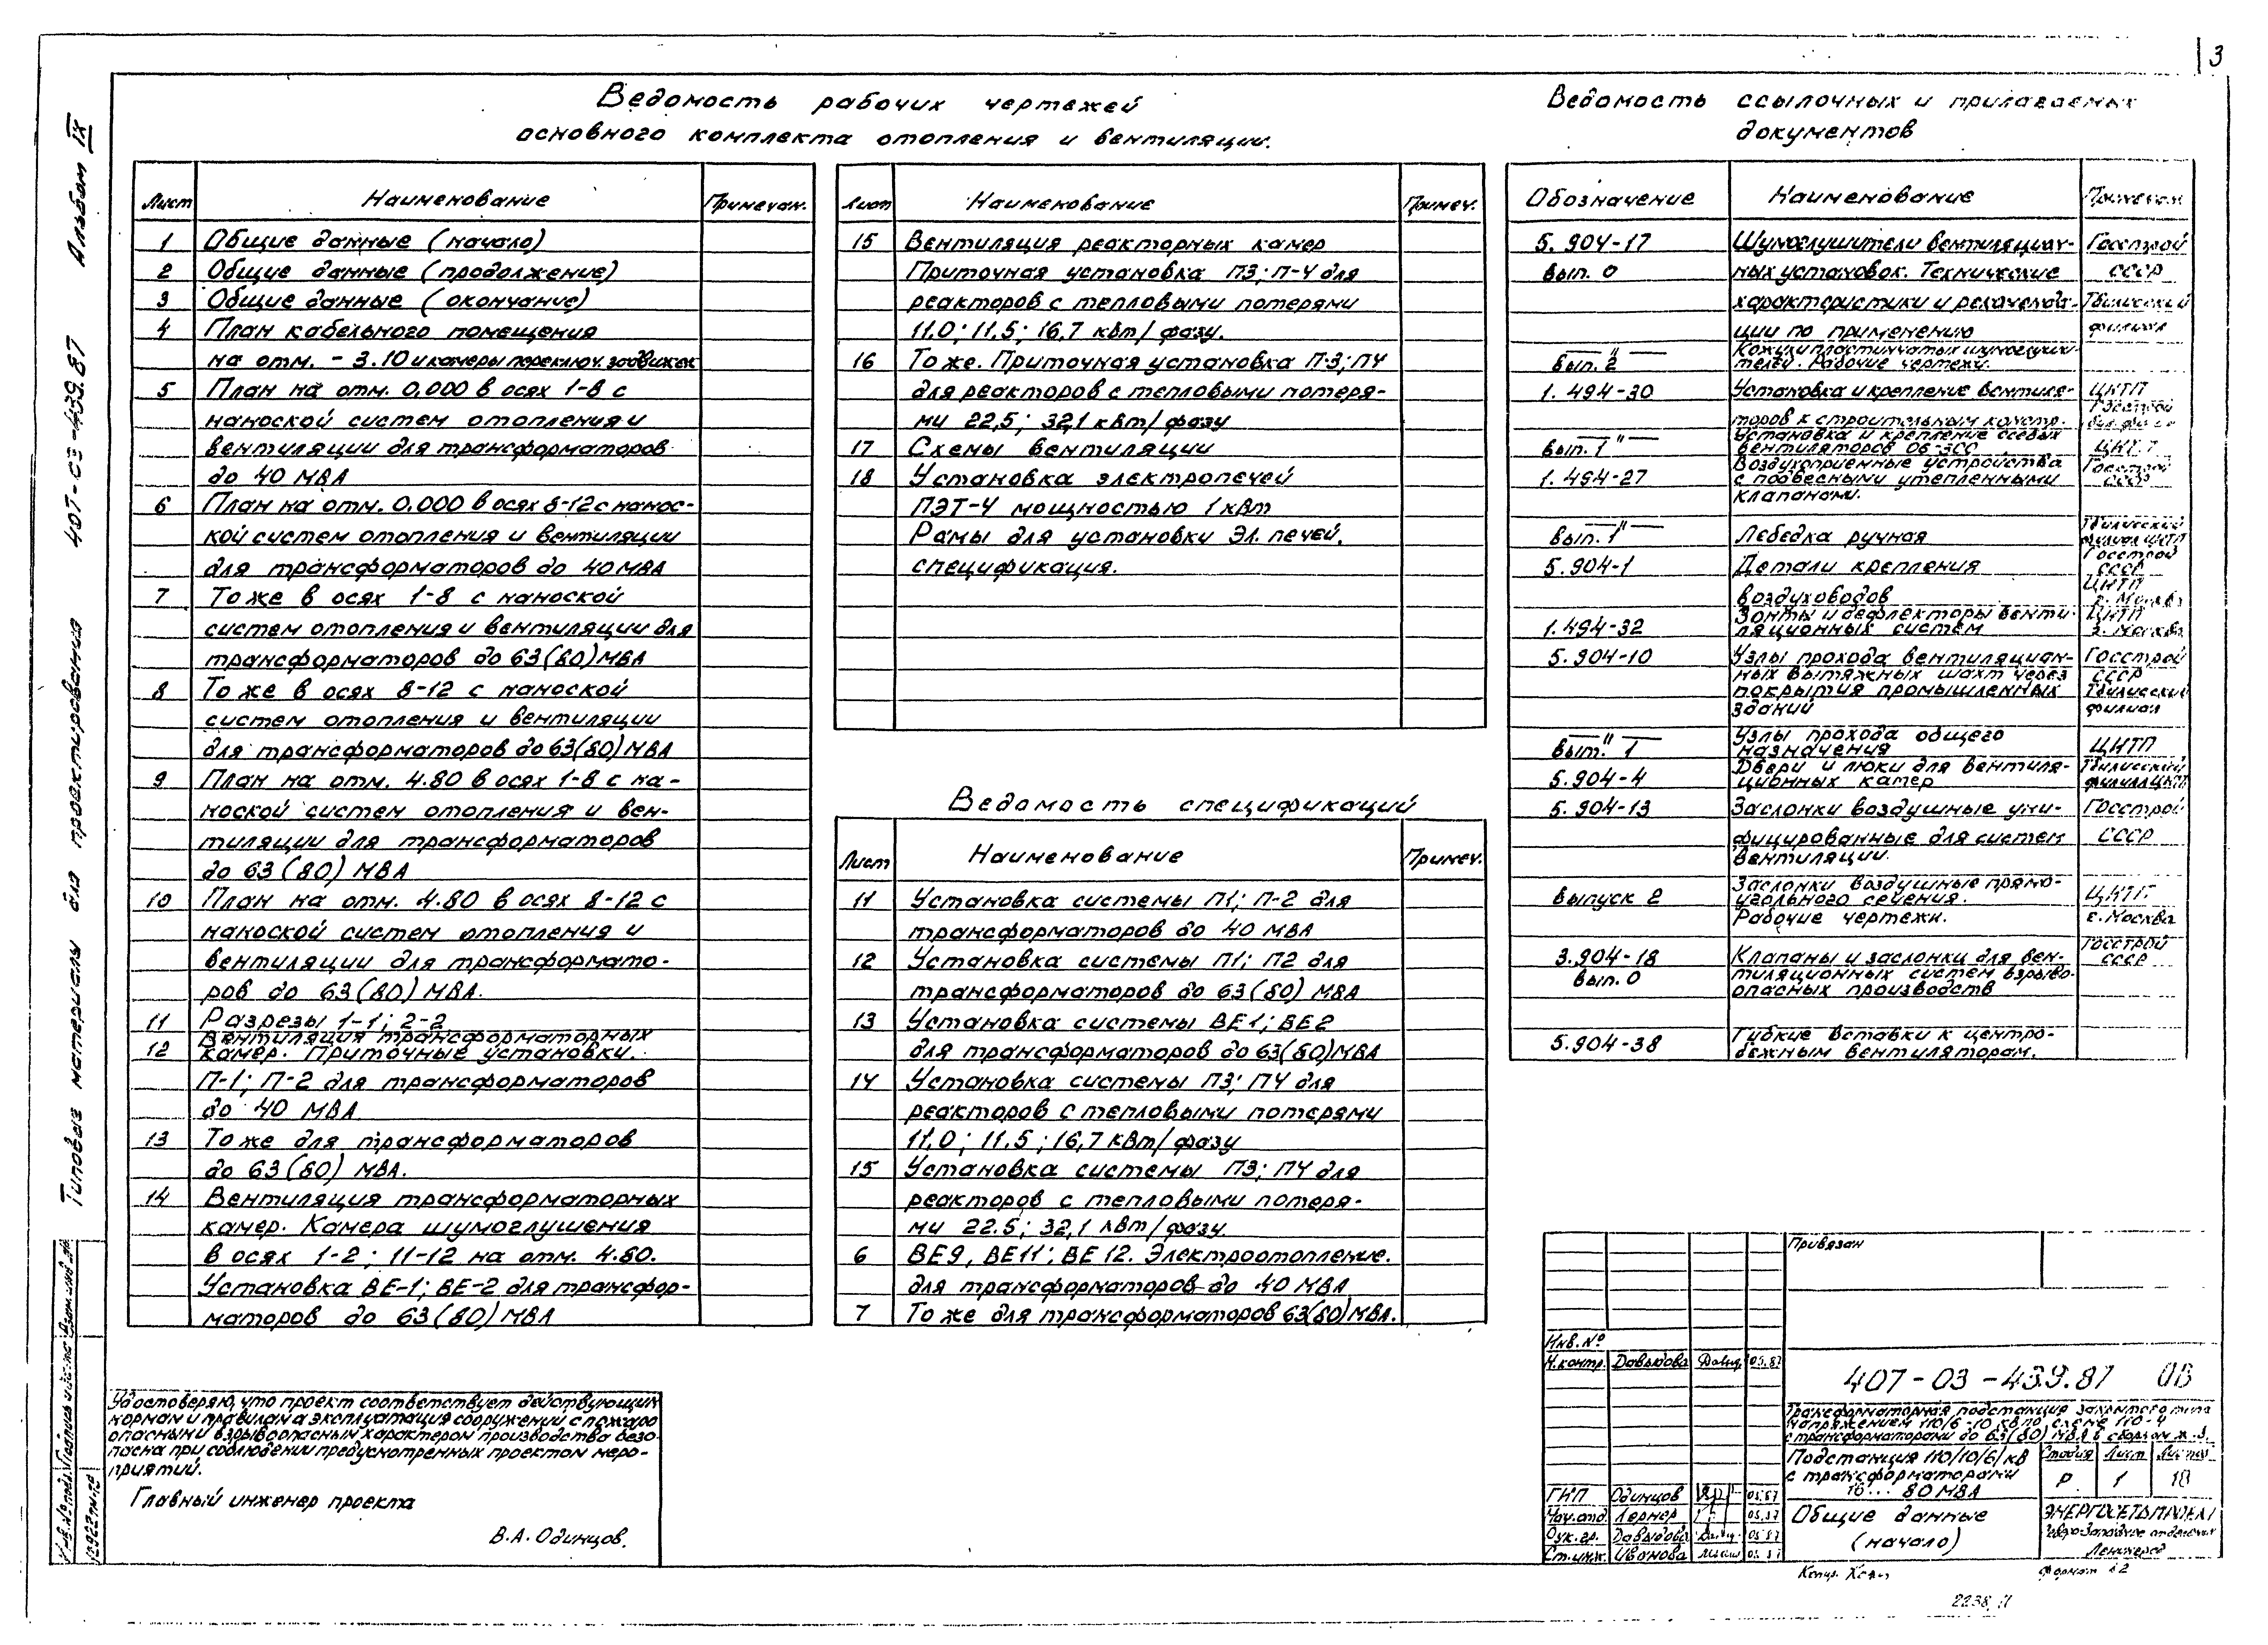 3
Ведомость рабочих чертежей
основного комплекта отопления и вентиляции.
Лист Наименование Примечан.
1 Общие данные (начало)
2 Общие данные (продолжение)
3 Общие данные (окончание)
4 План кабельного помещения
на отм. - 3.10 и камеры переключ. задвижек
5 План на отм. 0,000 в осях 1-8 с
наноской систем отопления и
вентиляции для трансформаторов
до 40 МВА
6 План на отм. 0.000 в осях 8-12 с нанос-
кой систем отопления и вентиляции
для трансформаторов до 40 МВА
7 То же в осях 1-8 с наноской
систем отопления и вентиляции для
трансформаторов до 63(80) МВА
8 То же в осях 8-12 с наноской
систем отопления и вентиляции
для трансформаторов до 63(80) МВА
9 План на отм. 4.80 в осях 1-8 с на-
ноской систем отопления и вен-
тиляции для трансформаторов
до 63(80) МВА
10 План на отм. 4.80 в осях 8-12 с
наноской систем отопления и
вентиляции для трансформато-
ров до 63(80) МВА.
11 Разрезы 1-1; 2-2
Вентиляция трансформаторных
12 камер. Приточные установки.
П-1; П-2 для трансформаторов
до 40 МВА
13 То же для трансформаторов
до 63(80) МВА.
14 Вентиляция трансформаторных
камер. Камера шумоглушения
в осях 1-2; 11-12 на отм. 4.80.
Установка ВЕ-1; ВЕ-2 для трансфор-
маторов до 63(80) МВА
Лист Наименование Примеч.
15 Вентиляция реакторных камер
Приточная установка П3; П-4 для
реакторов с тепловыми потерями
11.0; 11,5; 16,7 кВт/фазу.
16 То же. Приточная установка П-3; П4
для реакторов с тепловыми потеря-
ми 22,5; 32,1 кВт/фазу
17 Схемы вентиляции
18 Установка электропечей
ПЭТ-4 мощностью 1 кВт
Рамы для установки Эл. печей.
спецификация.
Ведомость спецификаций
Лист Наименование Примеч.
11 Установка системы П1; П-2 для
трансформаторов до 40 МВА
12 Установка системы П1; П2 для
трансформаторов до 63(80) МВА
13 Установка системы ВЕ1; ВЕ2
для трансформаторов до 63(80) МВА
14 Установка системы П3; П4 для
реакторов с тепловыми потерями
11,0; 11.5; 16,7 кВт/фазу
15 Установка системы П3; П4 для
реакторов с тепловыми потеря-
ми 22.5; 32,1 кВт/фазу.
6 ВЕ9, ВЕ11; ВЕ12. Электроотопление.
для трансформаторов до 40 МВА
7 То же для трансформаторов 63(80) МВА.
Ведомость ссылочных и прилагаемых
документов
Обозначение Наименование Примечан
5.904-17 Шумоглушители вентиляцион- Госстрой
вып. 0 ных установок. Технические СССР
характеристики и рекоменда- Тбилисский
ции по применению филиал
—"— Кожухи пластинчатых шумоглуши-
вып. 2 телей. Рабочие чертежи.
1.494-30 Установка и крепление вентиля- ЦИТП
Госстрой
торов к строительным констр.
—"— Установка и крепление осевых
вып. 1 вентиляторов 06-300 ЦИТП
Воздухоприемные устройства Госстрой
1.494-27 с подвесными утепленными СССР
клапанами.
—"— Тбилисский
вып. 1 Лебедка ручная филиал ЦИТП
Госстрой
5.904-1 Детали крепления СССР
ЦИТП
воздуховодов г. Москва
Зонты и дефлекторы венти- ЦИТП
1.494-32 ляционных систем г. Москва
5.904-10 Узлы прохода вентиляцион- Госстрой
ных вытяжных шахт через СССР
покрытия промышленных Тбилисский
зданий филиал
—"— Узлы прохода общего
вып. 1 назначения ЦИТП
Двери и люки для вентиля- Тбилисский
5.904-4 ционных камер филиал ЦИТП
5.904-13 Заслонки воздушные уни- Госстрой
фицированные для систем СССР
вентиляции.
Заслонки воздушные прямо-
выпуск 2 угольного сечения. ЦИТП
Рабочие чертежи. г. Москва
Госстрой
3.904-18 Клапаны и заслонки для вен- СССР
вып. 0 тиляционных систем взрыво-
опасных производств
5.904-38 Гибкие вставки к центро-
бежным вентиляторам.
Типовые материалы для проектирования 407-03-439.87 Альбом IX
Инв. № подл. Подпись и дата Взам. инв. №
12922тм-т9
Удостоверяю, что проект соответствует действующим
нормам и правилам а эксплуатация сооружений с пожаро
опасным и взрывоопасным характером производства безо-
пасна при соблюдении предусмотренных проектом меро-
приятий.
Главный инженер проекта
В.А. Одинцов.
Привязан
Инв. №
Н.контр. Давыдова 05.87
407-03-439.87 ОВ
Трансформаторная подстанция закрытого типа
напряжением 110/6-10 кВ по схеме 110-4
с трансформаторами до 63(80) МВА в сборном ж.б.
Подстанция 110/10/6/ кВ
с трансформаторами
16... 80 МВА
Стадия Лист Листов
Р 1 18
ГИП Одинцов 05.87
Нач.отд. Лернер 05.87
Рук.гр. Давыдова 05.87
Ст.инж. Иванова 05.87
Общие данные
(начало)
ЭНЕРГОСЕТЬПРОЕКТ
Северо-Западное отделение
Ленинград
Копир. Формат А2